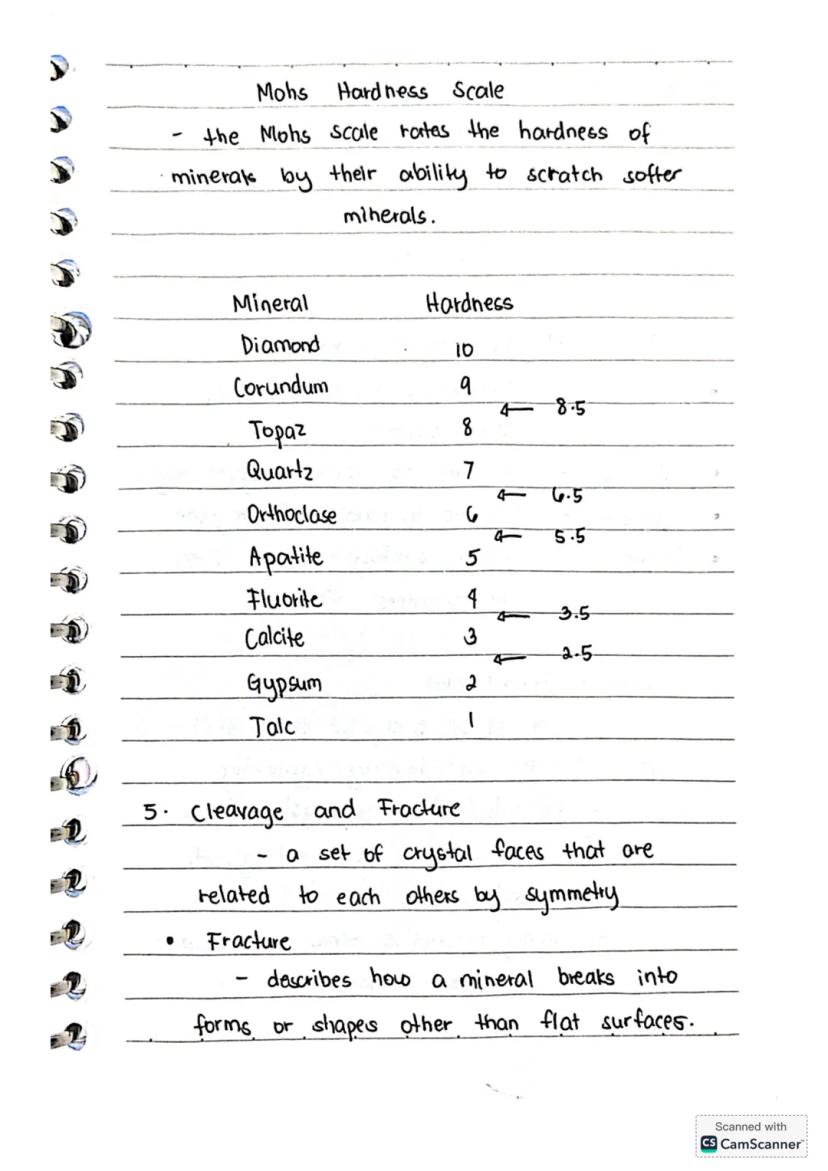 Mohs Hardness Scale
- the Mohs scale rates the hardness of
minerals by their ability to scratch softer
minerals.
Mineral Hardness
Diamond 10
Corundum 9
← 8.5
Topaz 8
Quartz 7
← 6.5
Orthoclase 6
← 5.5
Apatite 5
Fluorite 4
← 3.5
Calcite 3
← 2.5
Gypsum 2
Talc 1
5. Cleavage and Fracture
- a set of crystal faces that are
related to each others by symmetry
• Fracture
- describes how a mineral breaks into
forms or shapes other than flat surfaces.
Scanned with
CS CamScanner